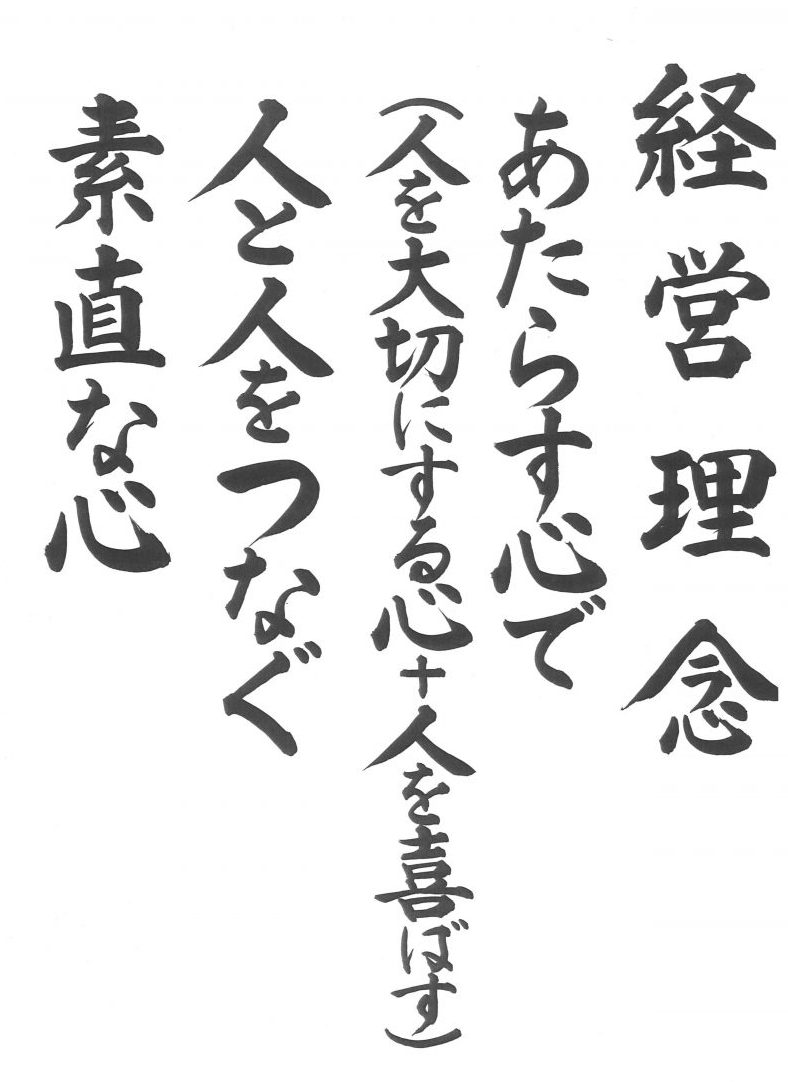 経営理念
あたらす心で
(人を大切にする心+人を喜ばす)
人と人をつなぐ
素直な心